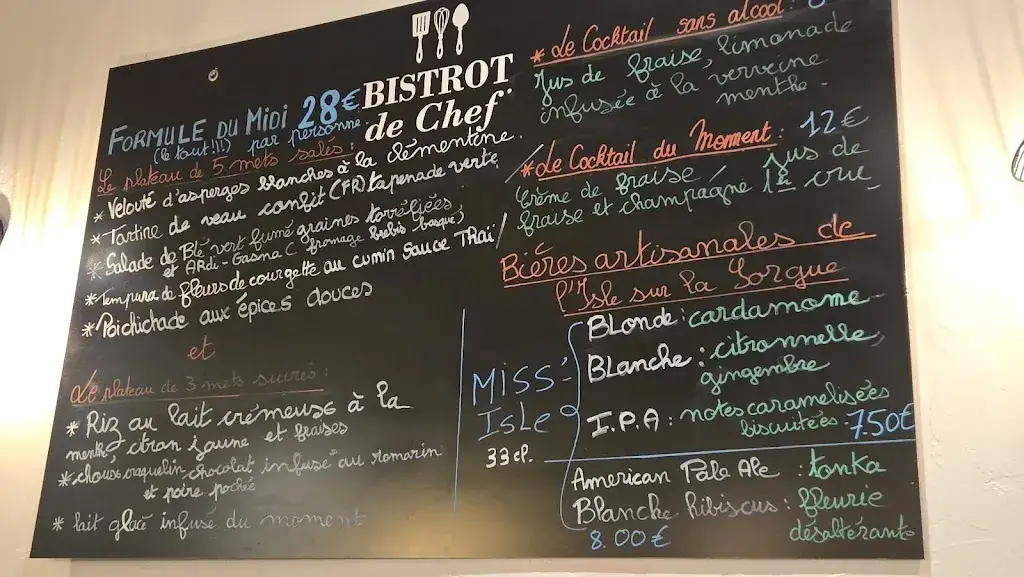 BISTROT
de Chef
FORMULE DU MIDI 28€
(le tout!!!) par personne.
Le plateau de 5 mets salés :
* Velouté d'asperges blanches à la clémentine.
* Tartine de veau confit (FR) tapenade verte
* Salade de Blé vert fumé graines torréfiées,
et ARdi-Gasna (fromage brebis basque)
* Tempura de fleurs de courgette au cumin sauce Thaï
* Poichichade aux épices douces
et
Le plateau de 3 mets sucrés :
* Riz au lait crémeuse à la
menthe, citron jaune et fraises
* choux craquelin chocolat infusé au romarin
et poire pochée
* lait glacé infusé du moment
* Le Cocktail sans alcool :
Jus de fraise, limonade
infusée à la verveine
menthe.
* Le Cocktail du Moment : 12€
Crème de fraise / Jus de
fraise et champagne 1er cru
Bières artisanales de
l'Isle sur la Sorgue
MISS'
ISLE
33 cl.
BLONDE : cardamome
BLANCHE : citronnelle,
gingembre
I.P.A : notes caramelisées
biscuitées 7.50€
American Pale Ale : tonka
Blanche hibiscus : fleurie
désaltérante
8.00€